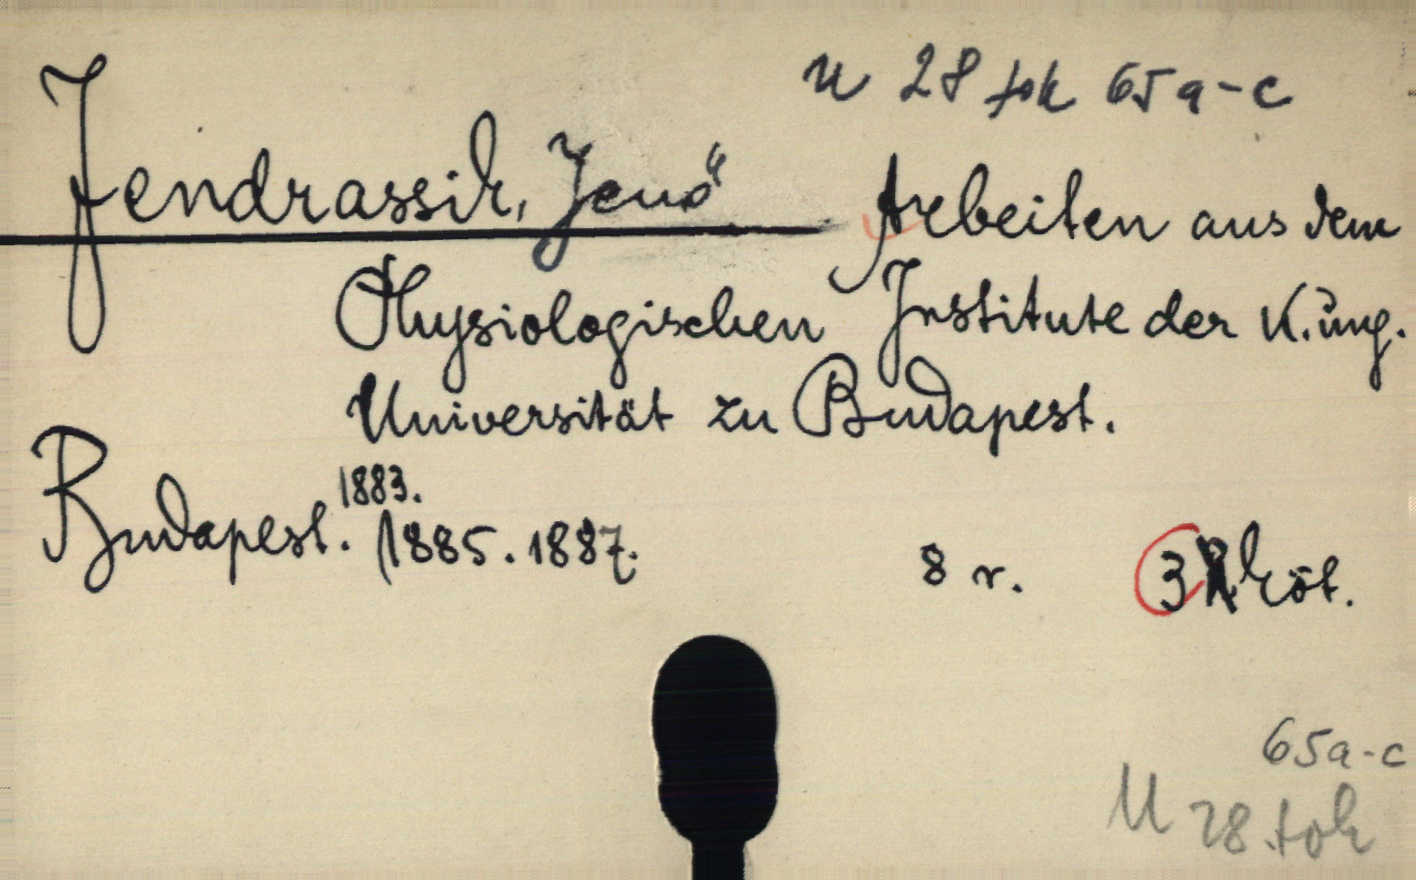 U 28 tok 65 a-c
Jendrassik, Jenő Arbeiten aus dem
Physiologischen Institute der K. ung.
Universität zu Budapest.
1883.
Budapest. 1885. 1887. 8 r. 3 köt.
65a-c
U 28. tok